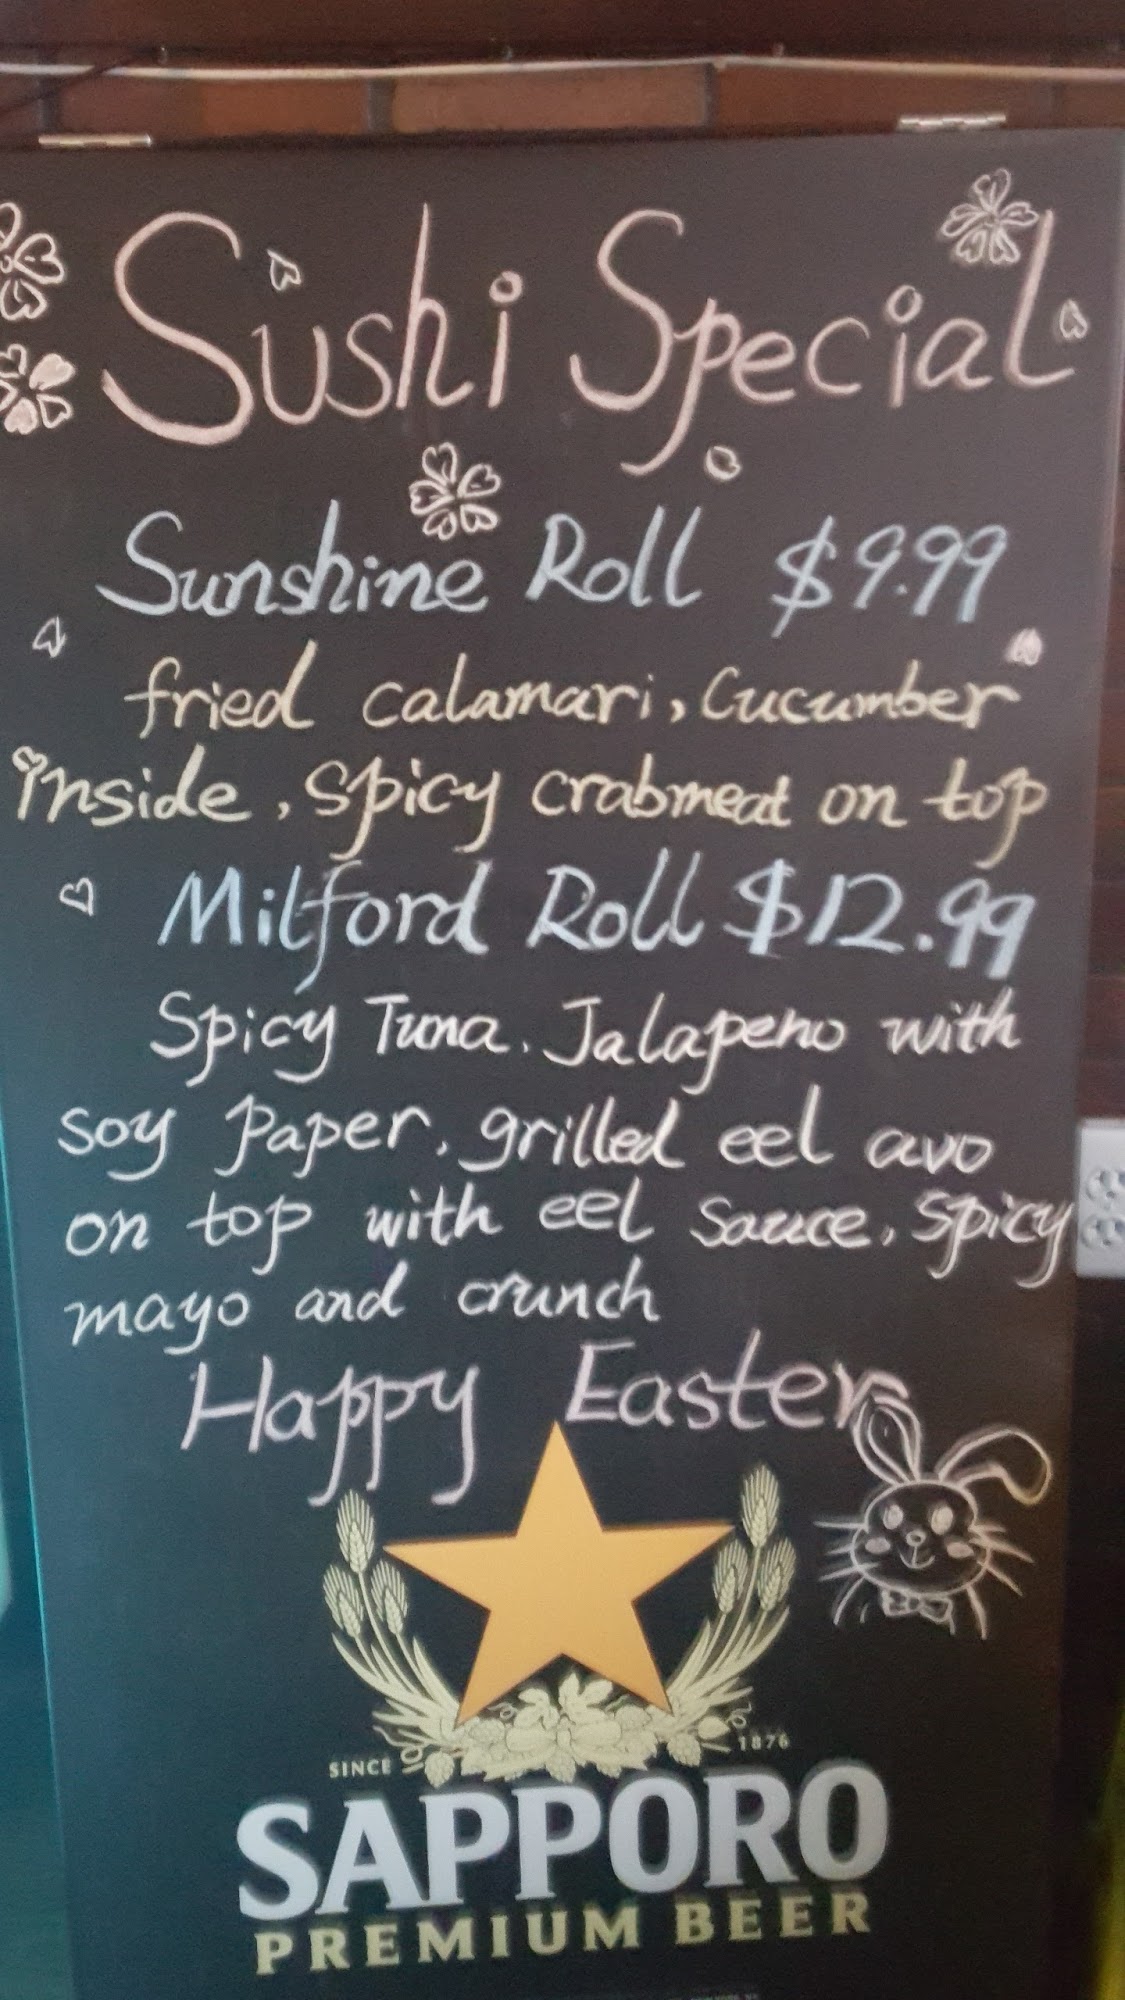 Sushi Special
Sunshine Roll $9.99
fried calamari, Cucumber
inside, spicy crabmeat on top
Milford Roll $12.99
Spicy Tuna. Jalapeno with
soy paper, grilled eel avo
on top with eel sauce, spicy
mayo and crunch
Happy Easter
SINCE 1876
SAPPORO
PREMIUM BEER